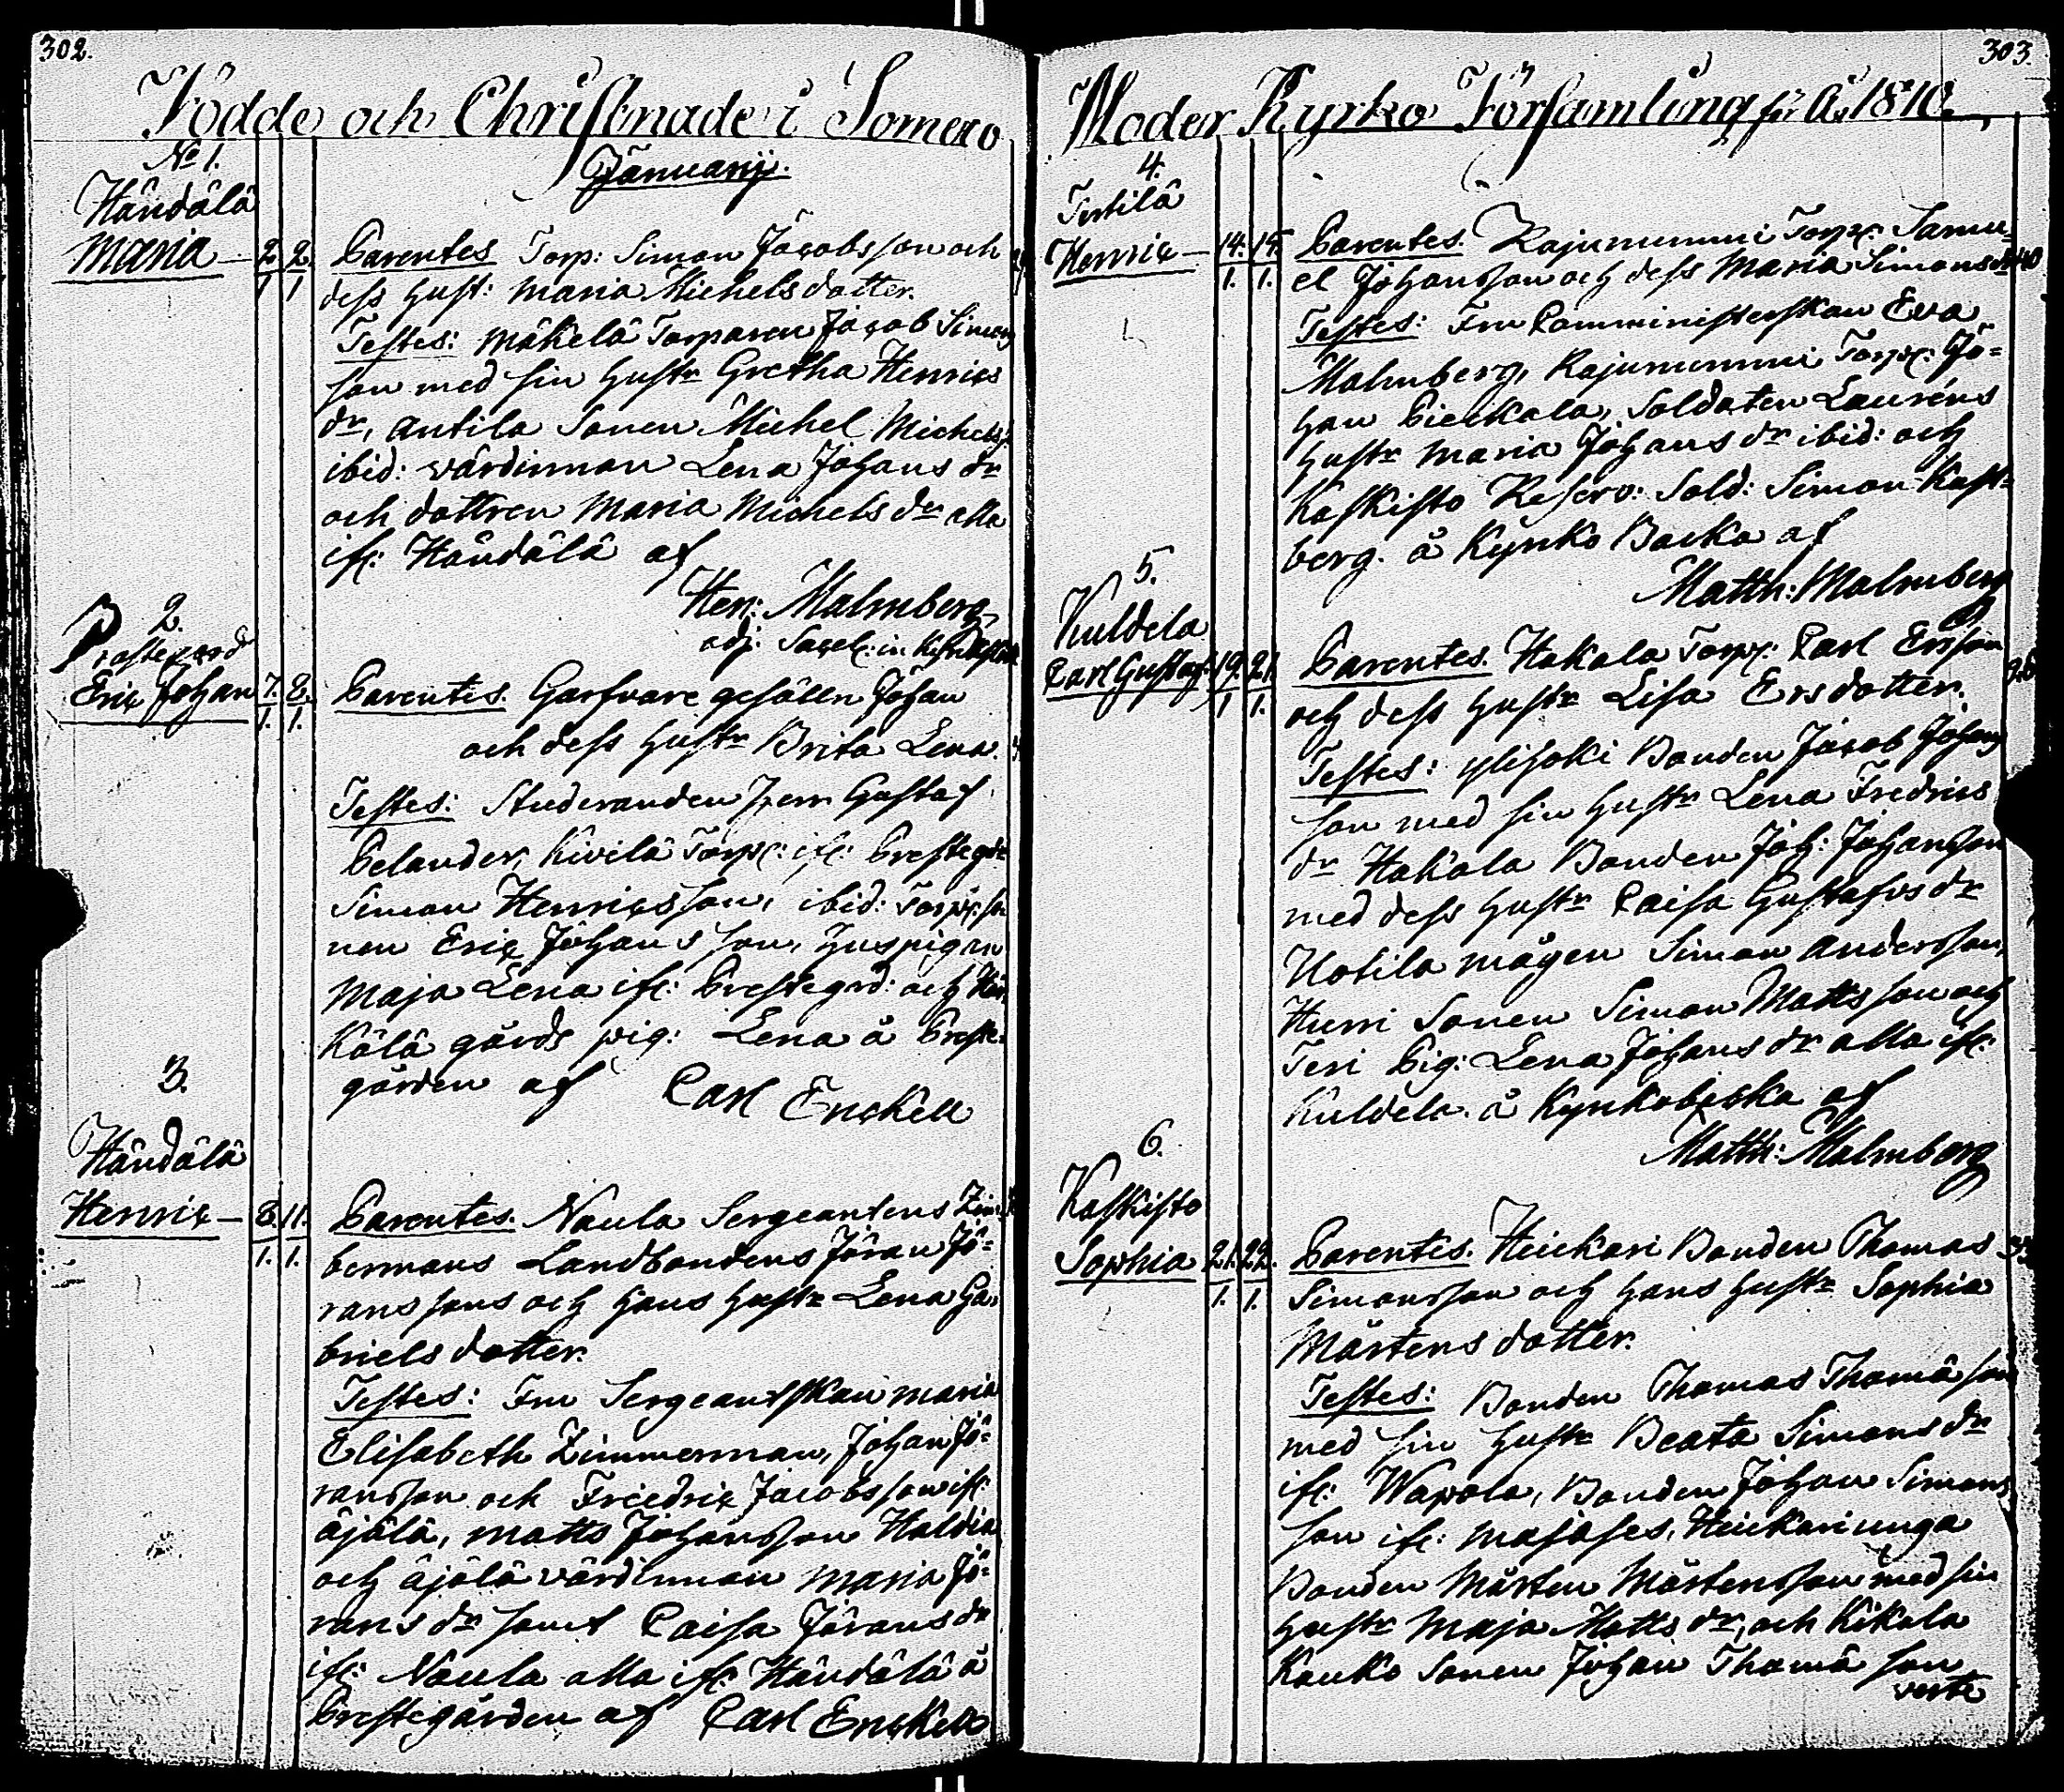 302.
Födde och Christnade i Somero
Januarij.
No 1.
Händälä
Maria
2. 2.
1 1
Parentes Torp: Simon Jacobsson och
dess hust: Maria Michelsdotter.
Testes: Mäkelä Torparen Jacob Simons
son med sin hustr Gretha Henrics
dr, Antila Sonen Michel Michelss:
ibid: värdinnan Lena Johans dr
och dottren Maria Michels dr alla
ifr: Händälä af
Hen: Malmberg
adj: Sacel: in
2.
Prostegård
Eric Johan
7. 8.
1. 1.
Parentes. Garfvare gesällen Johan
och dess hustr Brita Lena.
Testes: Studeranden Herr Gustaf
Belander, Kivilä Torp: ifr: Prestegrd:
Simon Henricsson, ibid: Torp: so
nen Eric Johansson, huspigan
Maja Lena ifr: Prestegrd: och Här
kälä gårds pig: Lena å Preste
gården af Carl Enckell
3.
Händälä
Henric
8. 11.
1. 1.
Parentes. Naula Sergeantens Zim
bermans Landbondens Jöran Jö=
ranssons och hans hustr Lena Ga
brielsdotter.
Testes: Fru Sergeantskan Maria
Elisabeth Zimmerman, Johan Jö=
ransson och Friedric Jacobsson ifr:
Äjälä, Matts Johansson Haldia
och Äjälä värdinnan Maria Jö=
rans dr samt Caisa Jörans dr
ifr: Naula alla ifr: Händälä å
Prestegården af Carl Enckell
303.
Moder Kyrko Församling för År 1810.
4.
Tertilä
Henric
14. 15.
1. 1.
Parentes. Rajunummi Torp: Samu=
el Johansson och dess Maria Simonsdr 40
Testes: Fru Comministerskan Eva
Malmberg, Rajunummi Torp: Jo=
han Pielkala, Soldaten Lauréns
hustr Maria Johans dr ibid: och
Kaskisto Reserv: Sold: Simon Kast=
berg. å Kyrko Backa af
Matth: Malmberg
5.
Kuldela
Carl Gustaf
19. 21.
1 1.
Parentes. Hakala Torp: Carl Ersson
och dess hustr Lisa Ersdotter.
Testes: Ylisoki Bonden Jacob Johans
son med sin hustr Lena Fredrics
dr Hakala Bonden Joh: Johansson
med dess hustr Caisa Gustafvs dr
Uotila mågen Simon Andersson,
Hurri Sonen Simon Mattsson och
Teri Pig: Lena Johans dr alla ifr:
Kuldela. å Kyrkobacka af
Matth: Malmberg
6.
Kaskisto
Sophia
21. 22.
1. 1.
Parentes. Heickari Bonden Thomas
Simonsson och hans hustr Sophia
Mårtensdotter.
Testes: Bonden Thomas Thomä son
med sin hustr Beata Simons dr
ifr: Wapola, Bonden Johan Simons
son ifr: Majases, Heickari unga
Bonden Mårten Mårtensson med sin
hustr Maja Matts dr, och Kikala
Kauko Sonen Johan Thomä son
verte